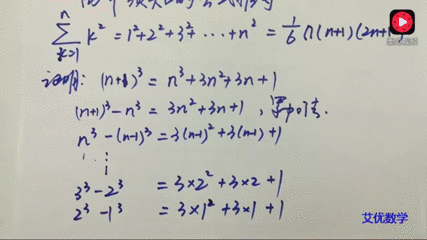 n
∑ k² = 1²+2²+3²+ ⋯ +n² = 1/6 n(n+1)(2n+1)
k=1
证明: (n+1)³ = n³+3n²+3n+1
(n+1)³-n³ = 3n²+3n+1,
n³-(n-1)³ = 3(n-1)²+3(n-1)+1
⋮
3³-2³ = 3×2²+3×2+1
2³-1³ = 3×1²+3×1+1
艾优数学